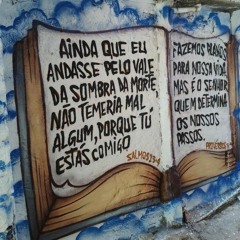 AINDA QUE EU
ANDASSE PELO VALE
DA SOMBRA DA MORTE,
NÃO TEMERIA MAL
ALGUM, PORQUE TÚ
ESTÁS COMIGO
SALMOS 23:4
FAZEMOS PLANOS
PARA NOSSA VIDA,
MAS É O SENHOR
QUEM DETERMINA
OS NOSSOS
PASSOS.